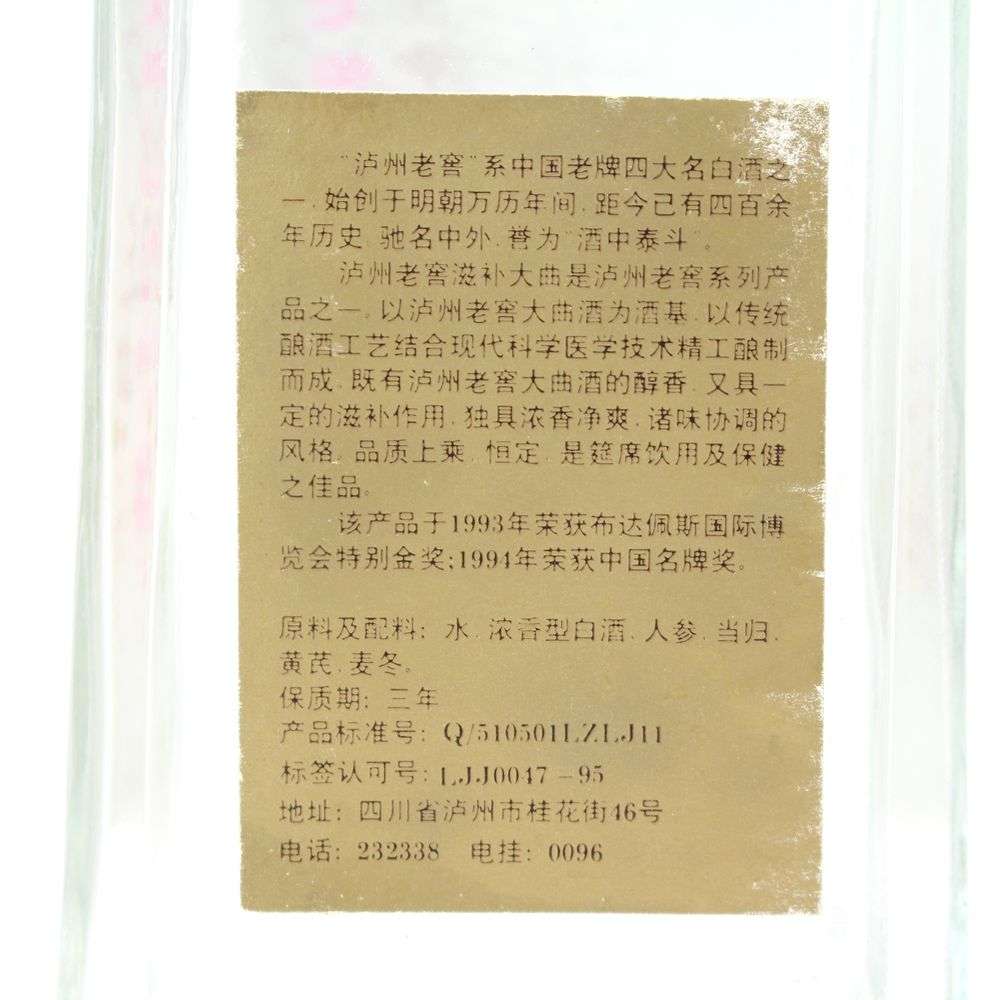 “泸州老窖”系中国老牌四大名白酒之
一,始创于明朝万历年间,距今已有四百余
年历史,驰名中外,誉为“酒中泰斗”。
泸州老窖滋补大曲是泸州老窖系列产
品之一。以泸州老窖大曲酒为酒基,以传统
酿酒工艺结合现代科学医学技术精工酿制
而成,既有泸州老窖大曲酒的醇香,又具一
定的滋补作用,独具浓香净爽,诸味协调的
风格,品质上乘,恒定,是筵席饮用及保健
之佳品。
该产品于1993年荣获布达佩斯国际博
览会特别金奖;1994年荣获中国名牌奖。
原料及配料:水,浓香型白酒,人参,当归,
黄芪,麦冬。
保质期:三年
产品标准号:Q/510501LZLJ11
标签认可号:LJJ0047-95
地址:四川省泸州市桂花街46号
电话:232338 电挂:0096